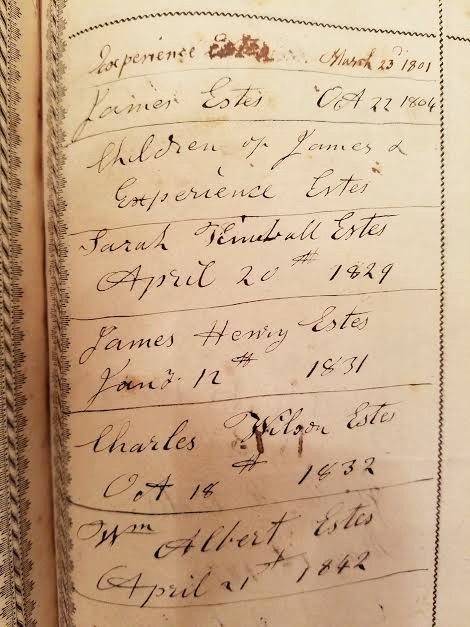 Experience Estes March 23d 1801
James Estes Oct 22 1806
Children of James &
Experience Estes
Sarah Kimball Estes
April 20th 1829
James Henry Estes
Jany. 12th 1831
Charles Wilson Estes
Oct 18th 1832
Wm Albert Estes
April 21st 1842